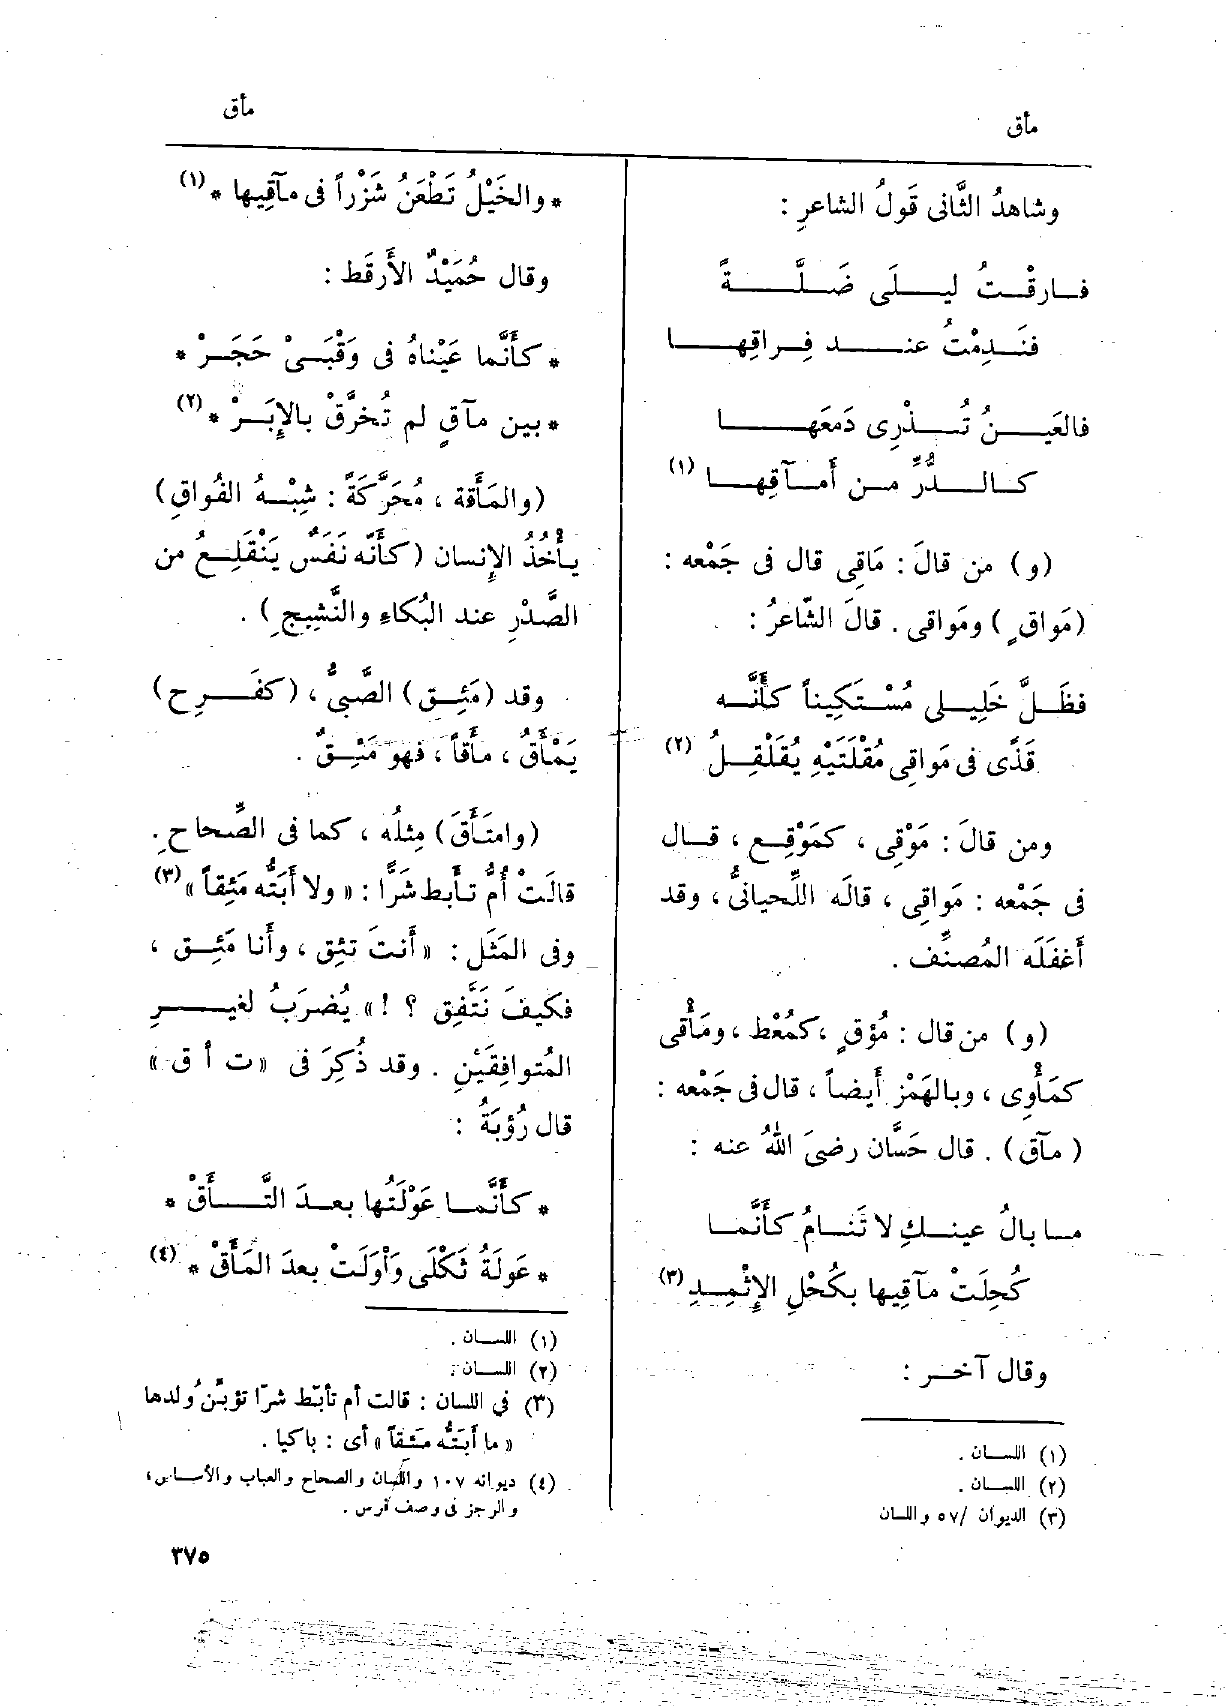 مأق
وشاهدُ الثَّانى قَولُ الشاعرِ :
فـارقْتُ ليـلَى ضَلَّـةً
فنَدِمْتُ عنـد فِـراقِهـا
فالعَيـنُ تُـذْرِى دَمعَهـا
كـالـدُّرِّ مـن أمـآقِهـا (١)
(و) من قالَ : مَاقِى قال فى جَمْعه :
(مَواقٍ) ومَواقى . قالَ الشّاعرُ :
فظَـلَّ خَلِيلى مُسْتَكِيناً كأَنَّـه
قَذًى فى مَواقِى مُقْلَتَيْهِ يُقَلْقِـلُ (٢)
ومن قالَ : مَوْقِى ، كمَوْقِـع ، قـال
فى جَمْعه : مَواقِى ، قالَه اللِّحيانىُّ ، وقد
أَغفَلَه المُصنِّف .
(و) من قال : مُؤقٍ ، كمُعْط ، ومَأْقى
كمَأْوِى ، وبالهَمْزِ أَيضاً ، قال فى جَمْعه :
(مآق) . قال حَسَّان رضىَ اللهُ عنه :
مـا بالُ عينـكِ لا تَنـامُ كأَنَّمـا
كُحِلَتْ مآقِيها بكُحْلِ الإِثْمِـدِ (٣)
وقال آخـر :
(١) اللسـان .
(٢) اللسـان .
(٣) الديوان /٥٧ واللسان
مأق
* والخَيْلُ تَطْعَنُ شَزْراً فى مآقِيها * (١)
وقال حُمَيْدٌ الأَرقَط :
* كأَنَّما عَيْناهُ فى وَقْبَـىْ حَجَـرْ *
* بين مآقٍ لم تُخرَّقْ بالإِبَـرْ * (٢)
(والمَأَقة ، مُحَرَّكَةً : شِبْـهُ الفُواقِ)
يـأْخُذُ الإِنسان (كأَنّه نَفَسٌ يَنْقَلِـعُ من
الصَّدْرِ عند البُكاءِ والنَّشِيج) .
وقد (مَئِـق) الصَّبىُّ ، (كفَـرِح)
يَمْأَقُ ، مأَقاً ، فهو مَئِـقٌ .
(وامتَـأَقَ) مِثلُه ، كما فى الصِّحاحِ .
قالَتْ أُمُّ تـأَبط شَرًّا : « ولا أَبَتُّه مَئِقاً » (٣)
وفى المَثَل : « أَنتَ تئِق ، وأَنا مَئِـق ،
فكيفَ نَتَّفِق ؟ ! » يُضرَبُ لغيـرِ
المُتوافِقَيْنِ . وقد ذُكِرَ فى « ت أ ق »
قال رُؤبَةُ :
* كأَنَّمـا عَوْلَتُها بعـدَ التَّـأَقْ *
* عَولَةُ ثَكْلَى وَلْوَلَتْ بعدَ المَأَقْ * (٤)
(١) اللسـان .
(٢) اللسـان .
(٣) في اللسان : قالت أم تأبّط شرّا تؤبّن ولدها
« ما أبَتُّه مئقاً » أى : باكيا .
(٤) ديوانه ١٠٧ واللسان والصحاح والعباب والأساس ،
والرجز فى وصف قوس .
٣٧٥